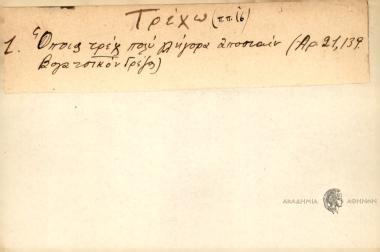 Τρέχω (ππ. ιб)
1. Ὅποιος τρέχ πολύ γλήγορα ἀποσταίν (Αρ 21, 139.
Βογατσικόν Γρέβ)
ΑΚΑΔΗΜΙΑ ΑΘΗΝΩΝ